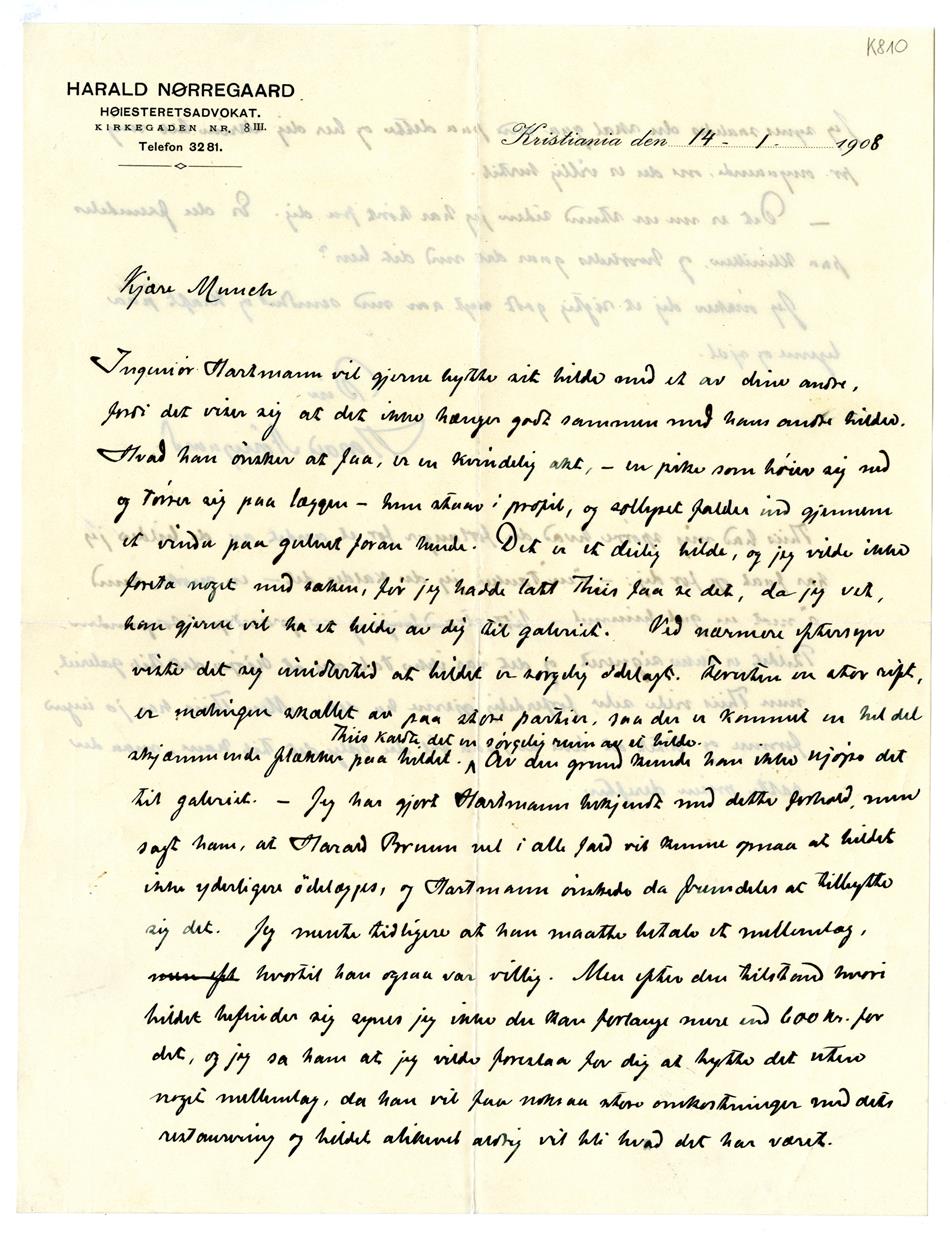 K810
HARALD NØRREGAARD
HØIESTERETSADVOKAT.
KIRKEGADEN NR. 8 III.
Telefon 3281.
Kristiania den 14 - 1. 1908
Kjære Munch
Ingeniør Hartmann vil gjerne bytte sit bilde med et av dine andre,
fordi det viser sig at det ikke hænger godt sammen med hans andre bilder.
Hvad han ønsker at faa, er en kvindelig akt, – en pike som bøier sig ned
og tørrer sig paa læggen – hun staar i profil, og sollyset falder ind gjennem
et vindu paa gulvet foran hende. Det er et deilig bilde, og jeg vilde ikke
foreta noget med saken, før jeg hadde latt Thiis faa se det, da jeg vet,
han gjerne vil ha et bilde av dig til galeriet. Ved nærmere eftersyn
viste det sig imidlertid at bildet er sørgelig ødelagt. Foruten en stor rift,
er malingen skallet av paa store partier, saa der er kommet en hel del
Thiis kaldte det en sørgelig ruin av et bilde.
skjæmmende flækker paa bildet. Av den grund kunde han ikke kjøpe det
til galeriet. – Jeg har gjort Hartmann bekjendt med dette forhold, men
sagt ham, at Harald Bruun vel i alle fald vil kunne opnaa at bildet
ikke yderligere ødelægges, og Hartmann ønskede da fremdeles at tilbytte
sig det. Jeg mente tidligere at han maatte betale et mellemlag,
men eft hvortil han ogsaa var villig. Men efter den tilstand hvori
bildet befinder sig synes jeg ikke du kan forlange mere end 600 kr. for
det, og jeg sa ham at jeg vilde foreslaa for dig at bytte det uten
noget mellemlag, da han vil faa noksaa store omkostninger med dets
restaurering og bildet alikevel aldrig vil bli hvad det har været.